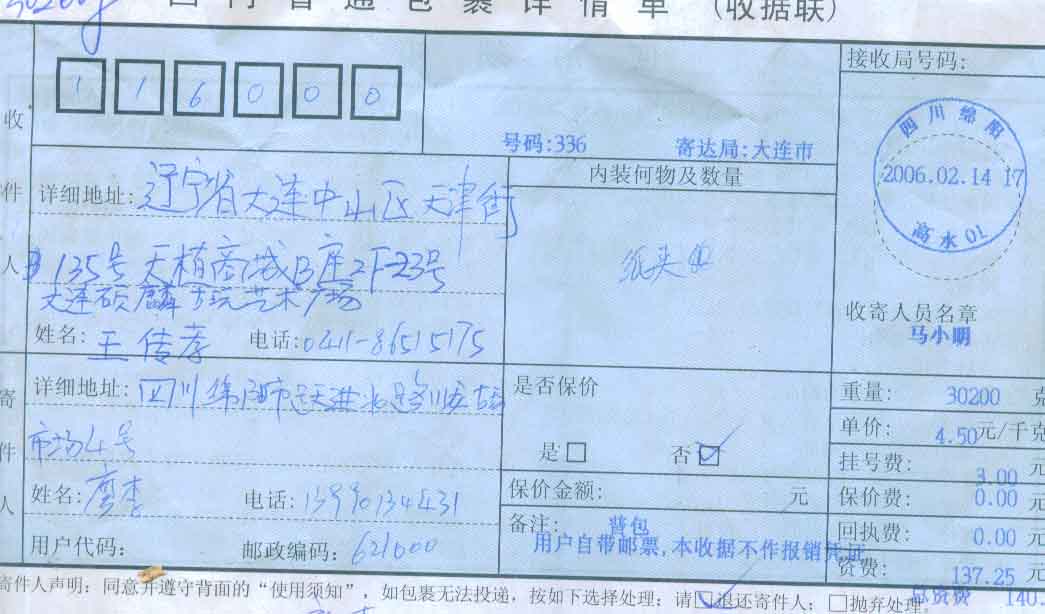 30200g
国内普通包裹详情单 (收据联)
接收局号码:
116000
号码:336 寄达局:大连市
四川绵阳
2006.02.14 17
高水01
收件人
详细地址: 辽宁省大连中山区天津街
135号天植商城B座2F23号
大连硕麟古玩艺术广场
姓名: 王传孝 电话: 0411-86515175
内装何物及数量
收寄人员名章
马小明
寄件人
详细地址: 四川绵阳市跃进
市场4号
姓名: 廖李 电话: 13990134431
用户代码: 邮政编码: 621000
是否保价
是□ 否☑
保价金额: 元
备注: 普包
用户自带邮票,本收据不作报销凭证
重量: 30200 克
单价: 4.50元/千克
挂号费: 3.00 元
保价费: 0.00 元
回执费: 0.00 元
资费: 137.25 元
总资费 140.
寄件人声明: 同意并遵守背面的“使用须知”, 如包裹无法投递, 按如下选择处理: 请☑退还寄件人; □抛弃处理